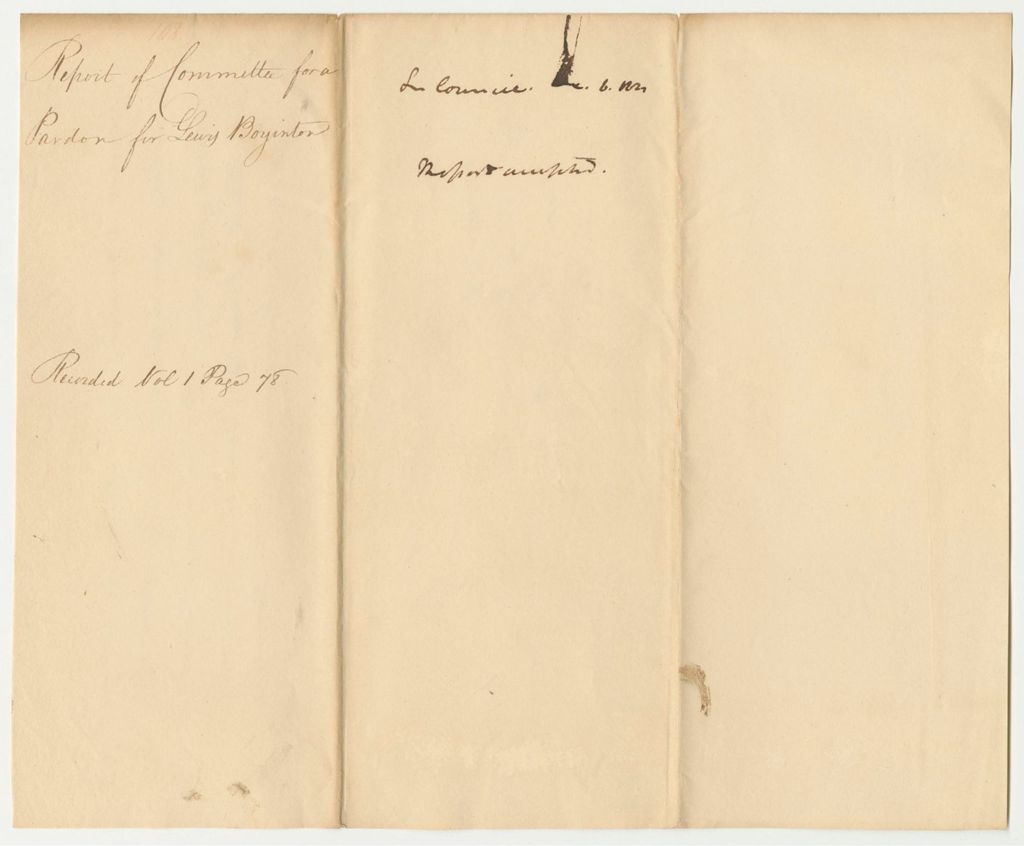 Report of Committee for a
Pardon for Lewis Boyinton
Recorded Vol 1 Page 78
In Council. 6.
Report accepted.